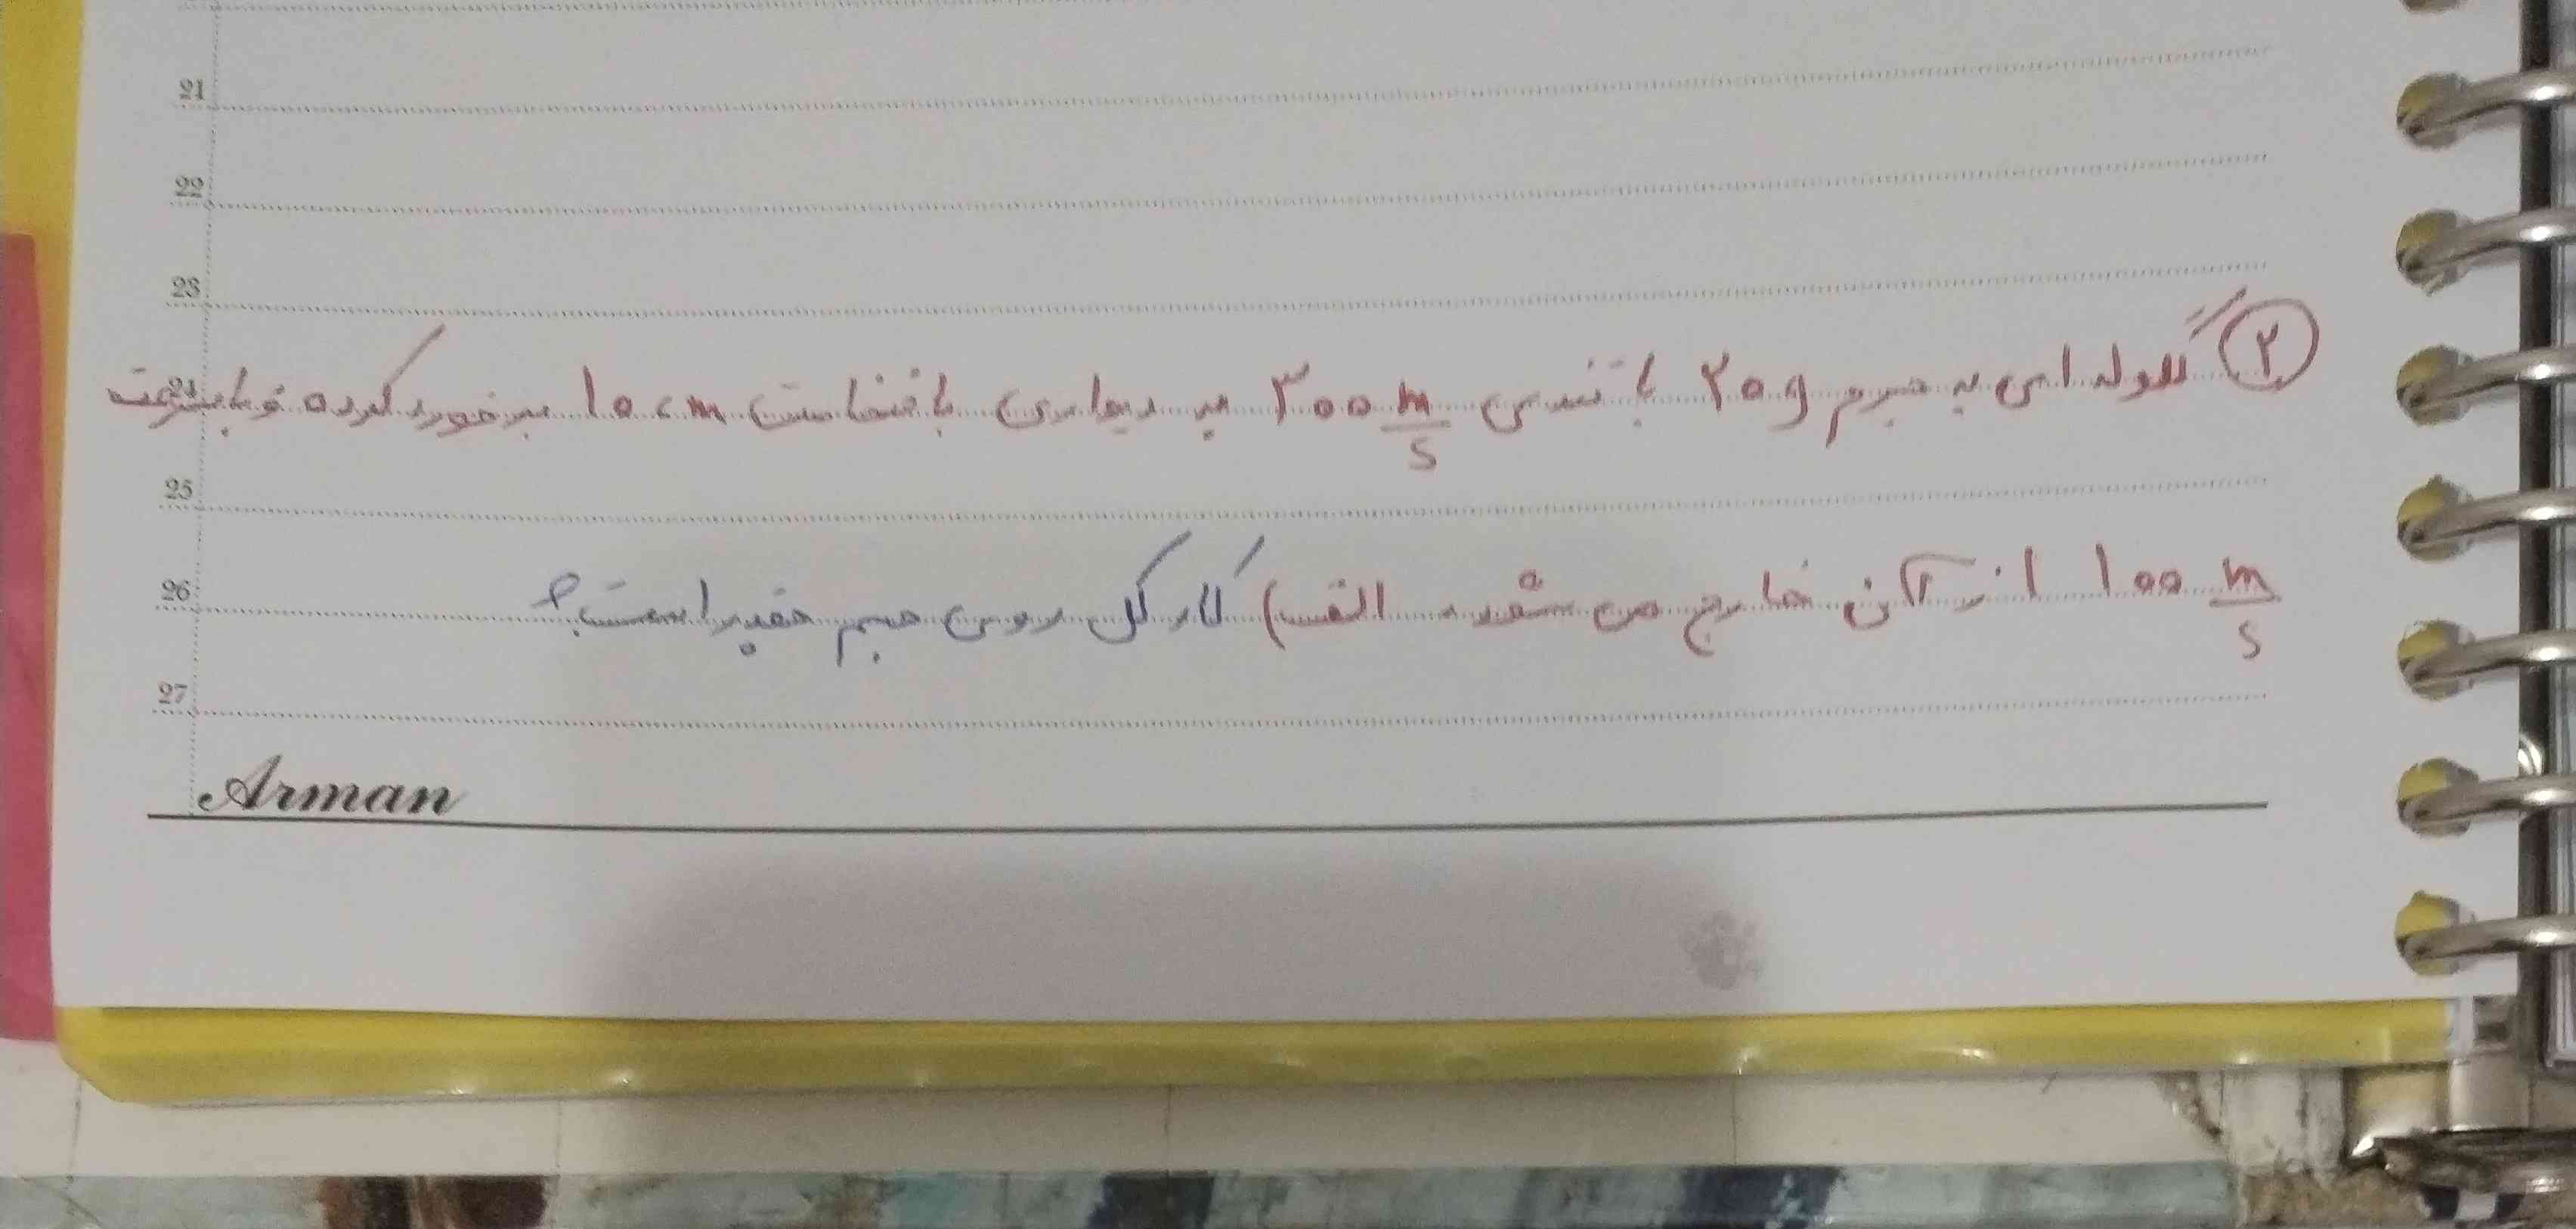 21
22
23
24
۲ گلوله ای به جرم ۲۰g با تندی ۳۰۰ m/s به دیواری با ضخامت ۱۰ cm برخورد کرده و با سرعت
25
۱۰۰ m/s از آن خارج می شود. الف) کار کل روی جسم چقدر است؟
26
27
Arman